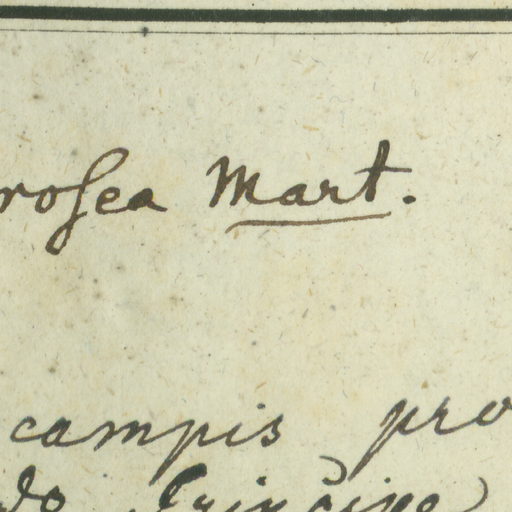 roſea Mart.
campis pro
do Principe